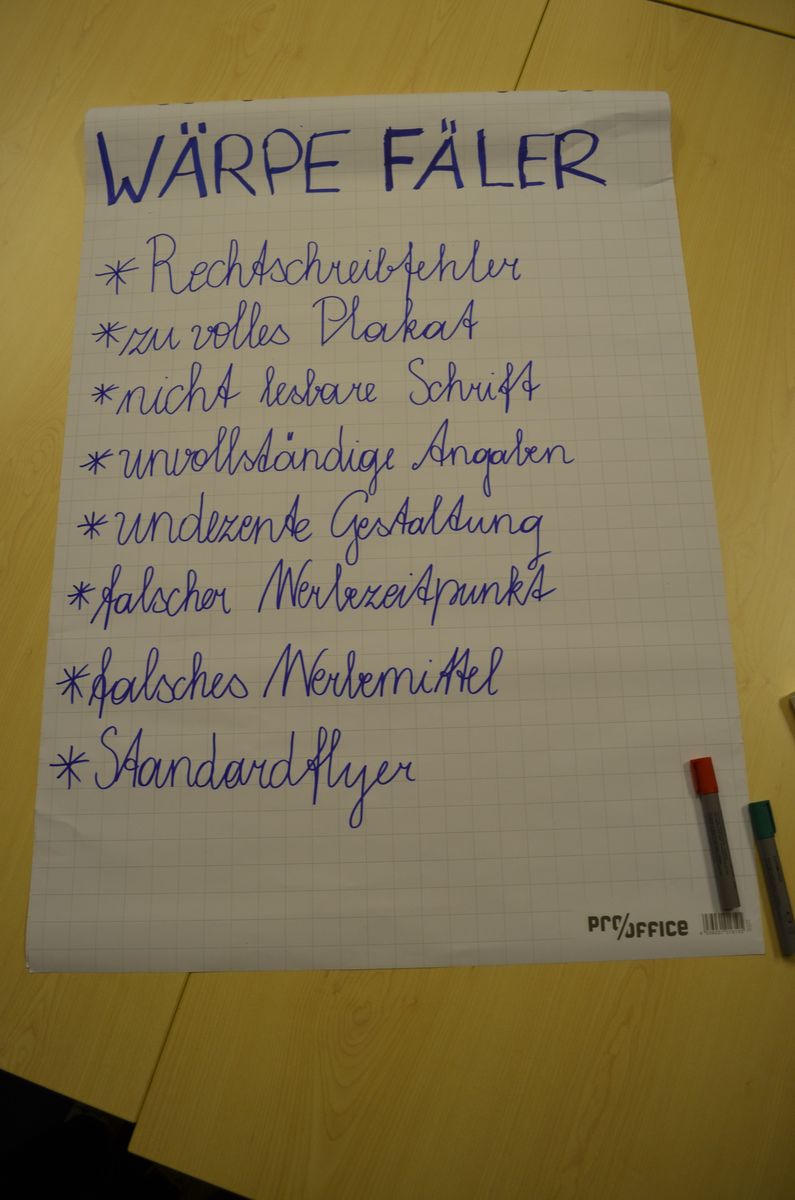 WÄRPE FÄLER
* Rechtschreibfehler
* zu volles Plakat
* nicht lesbare Schrift
* unvollständige Angaben
* undezente Gestaltung
* falscher Werbezeitpunkt
* falsches Werbemittel
* Standardflyer
pro/office